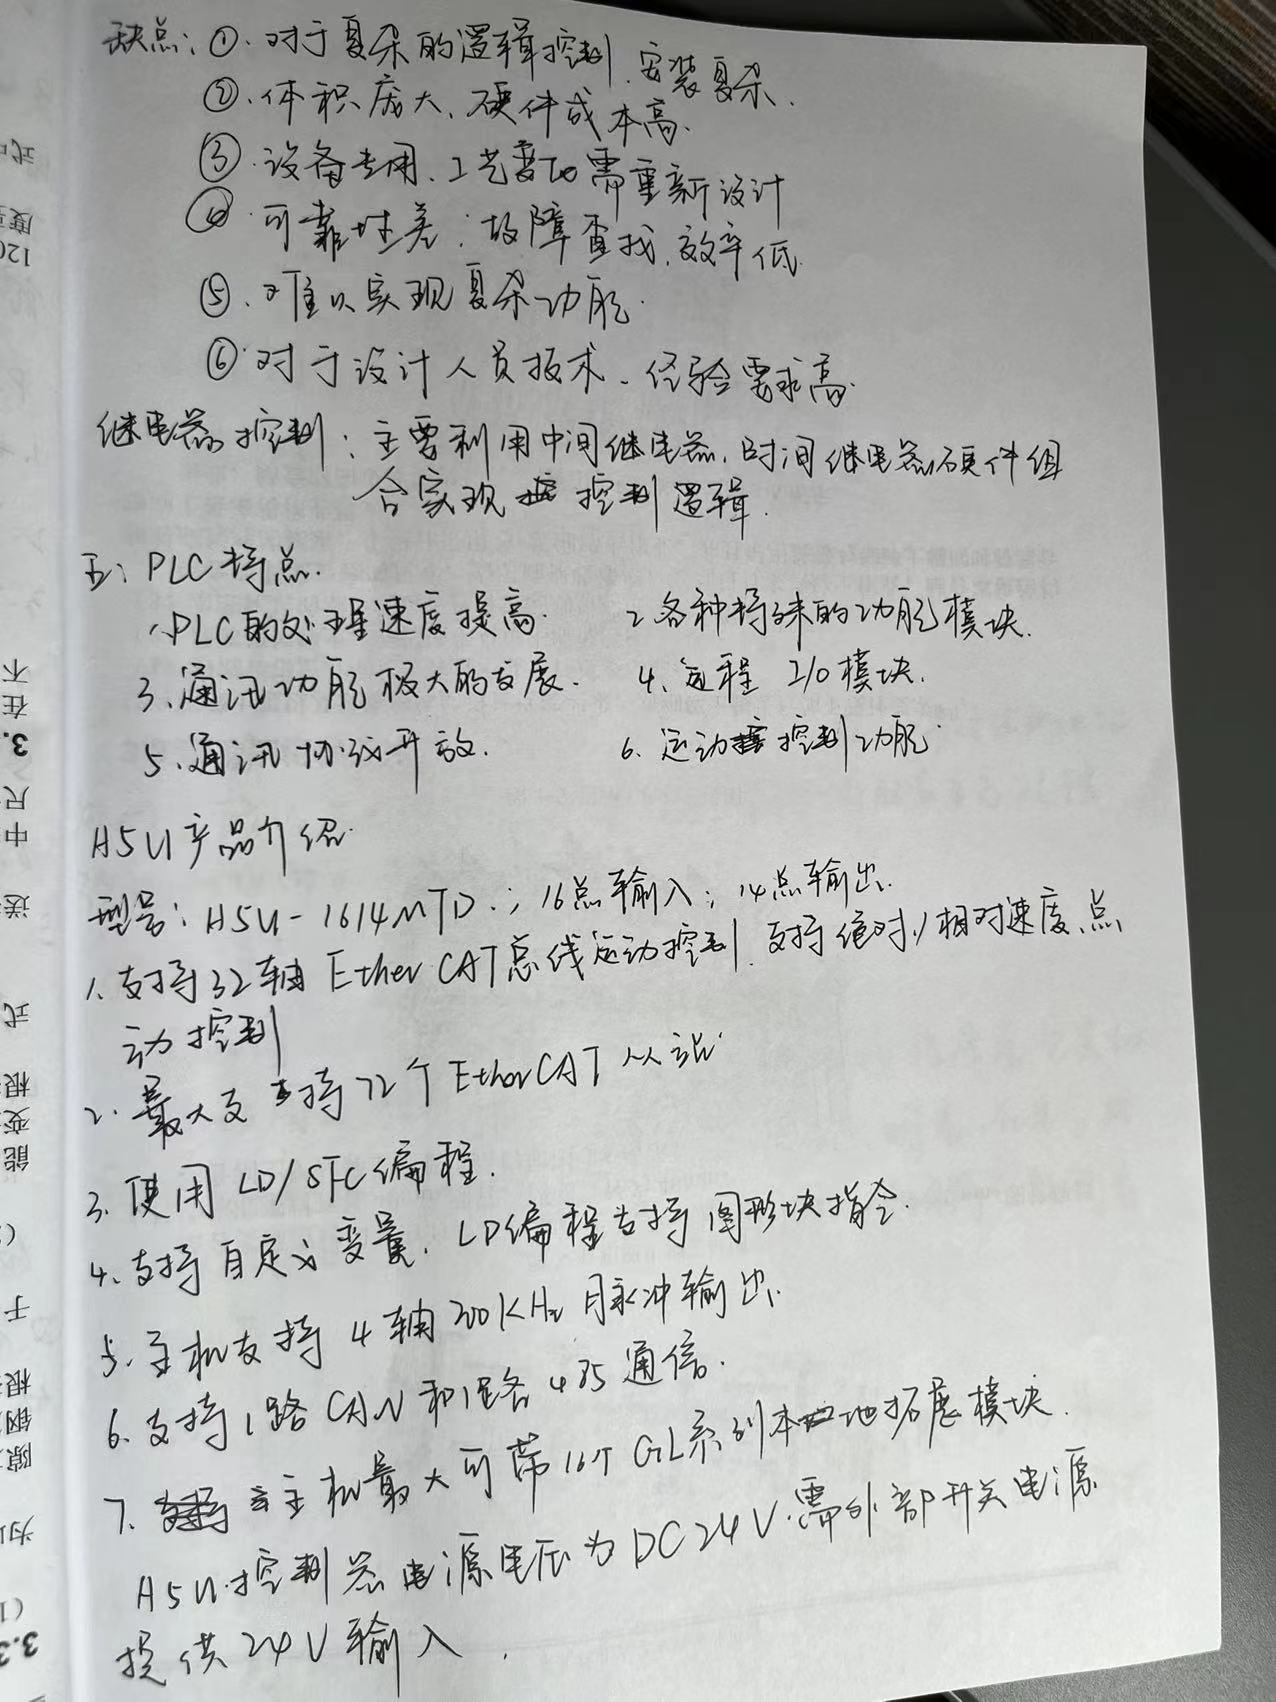 缺点：①.对于复杂的逻辑控制、安装复杂.
②.体积庞大、硬件成本高.
③.设备专用、工艺变动需重新设计
④.可靠性差；故障查找、效率低.
⑤.难以实现复杂功能.
⑥.对于设计人员技术、经验要求高.
继电器控制：主要利用中间继电器、时间继电器硬件组
合实现 控制逻辑.
五：PLC特点.
1、PLC的处理速度提高. 2.各种特殊的功能模块.
3、通讯功能极大的发展. 4、远程 I/O模块.
5、通讯协议开放. 6、运动 控制功能.
H5U产品介绍.
型号：H5U-1614MTD.；16点输入；14点输出.
1、支持32轴EtherCAT总线运动控制、支持绝对/相对速度、点
动控制
2.最大支持72个EtherCAT从站.
3.使用LD/SFC编程.
4.支持自定义变量、LD编程支持图形块指令.
5.主机支持4轴200KHz脉冲输出.
6.支持1路CAN和1路485通信.
7. 主机最大可带16个GL系列本地拓展模块.
H5U控制器电源电压为DC24V.需外部开关电源
提供24V输入.
不
在
3.
尺
中
送
式
根
变
能
于
根
钢
隙
为
3.3
度
120
式